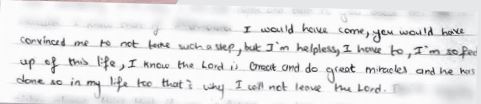 I would have come, you would have
convinced me to not take such a step, but I'm helpless, I have to, I'm so fed
up of this life, I know the Lord is Great and do great miracles and he has
done so in my life too that's why I will not leave the Lord.